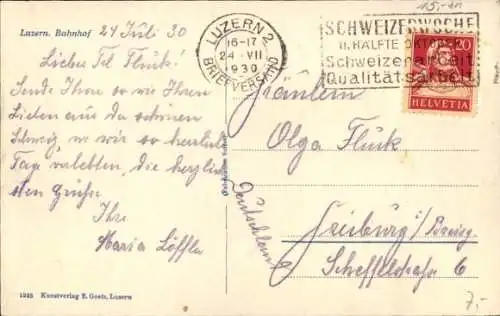 15.-
Luzern. Bahnhof
24 Juli 30
LUZERN 2
16-17
24. VII
1930
BRIEFVERSAND
SCHWEIZERWOCHE
II. HÄLFTE OKTOBER
Schweizerarbeit
Qualitätsarbeit
20
HELVETIA
Liebes Frl. Flück!
Sende Ihnen so wie Ihren
Lieben aus der schönen
Schweiz, wo wir so herrliche
Tage verlebten, die herzlich-
sten Grüße.
Ihre
Maria Löffler
Fräulein
Olga Flück.
Deutschland
Freiburg i/Breisg.
Scheffelstraße 6
1235 Kunstverlag E. Goetz, Luzern
7,-